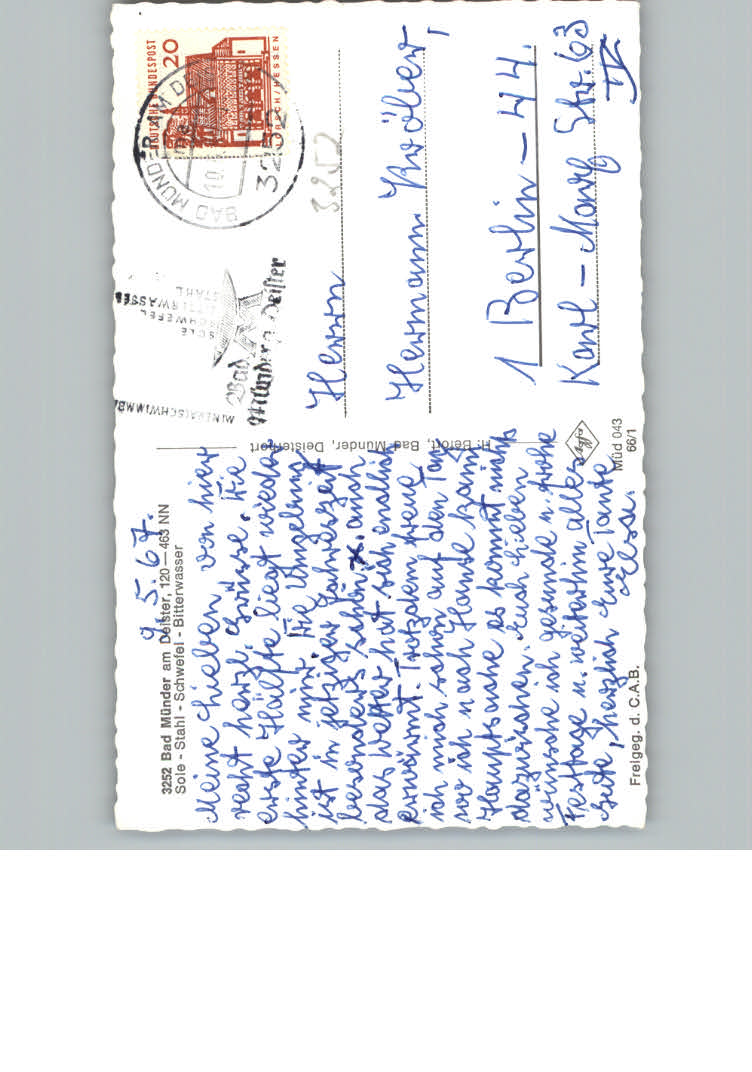 3252 Bad Münder am Deister, 120—463 NN
Sole - Stahl - Schwefel - Bitterwasser
9.5.67.
Meine Lieben von hier
recht herzl. Grüsse. Die
erste Hälfte liegt wieder
hinter mir. Die Umgebung
ist in jetziger Jahreszeit
besonders schön x. auch
das Wetter hat sich endlich
erwärmt. Trotzdem freue
ich mich schon auf den Tag
wo ich nach Hause kann
Hauptsache es kommt nichts
dazwischen. Euch Lieben
wünsche ich gesunde u. frohe
Festtage u. weiterhin alles
Gute, herzlich Eure Tante
Else.
Freigeg. d. C.A.B.
Fr. Befort, Bad Münder, Deisterport
Agfa
Müd 043
66/1
MINERALSCHWIMMBAD
SOLE
SCHWEFEL
BITTERWASSER
STAHL
Bad
Münder a. Deister
BAD MÜNDER AM DEISTER
10
3252
DEUTSCHE BUNDESPOST
20
LORSCH/HESSEN
3252
Herrn
Hermann Kröber,
1 Berlin - 44.
Karl - Marx Str. 63
IV